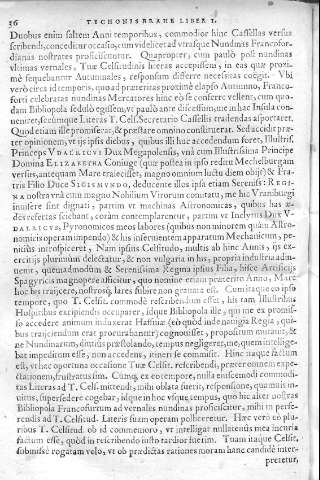 56 TYCHONIS BRAHE LIBER I.
Duobus enim saltem Anni temporibus, commodior hinc Cassellas versus
scribendi, conceditur occasio, cum videlicet ad utrasque Nundinas Francofor-
dianas nostrates proficiscuntur. Quapropter, cum paulò post nundinas
ultimas vernales, Tuæ Celsitudinis literas accepissem, in eas quæ proxi-
mè sequebantur Autumnales, responsum differre necessitas coëgit. Vbi
verò circa id temporis, quod ad præteritas proximè elapso Autumno, Franco-
forti celebratas nundinas Mercatores hinc se conferre vellent, cum quo-
dam Bibliopola sedulò egissem, ut paulò ante discessum, me in hac Insula con-
veniret, secúmque Literas T. Cels. Secretario Cassellis tradendas asportaret.
Quod etiam ille promiserat, & præstare omnino constituerat. Sed accidit præ-
ter opinionem, ut ijs ipsis diebus, quibus ille huc accedendum foret, Illustriss.
Princeps VDALRICVS Dux Megapolensis, unà cum Illustrissima Principe
Domina ELIZABETHA Coniuge (quæ postea in ipso reditu Mechelburgam
versus, antequam Mare traiecisset, magno omnium luctu diem obijt) & Fra-
tris Filio Duce SIGISMVNDO, deducente illos ipsa etiam Sereniss: REGI-
NA nostra unà cum magno Nobilium Virorum comitatu, me hic Vraniburgi
inuisere sint dignati, partim ut machinas Astronomicas, quibus has æ-
des refertas sciebant, coràm contemplarentur, partim ut Inclytus Dux V-
DALRICVS, Pyronomicos meos labores (quibus non minorem quàm Astro-
nomicis operam impendo) & his inseruientem apparatum Mechanicum, pe-
nitiùs introspiceret, Nam ipsius Celsitudo, multis ab hinc Annis, ijs ex-
ercitijs plurimùm delectatur, & non vulgaria in his, propria industria adin-
uenit, quemadmodum & Serenissima Regina ipsius Filia, hisce Artificijs
Spagyricis magnopere afficitur, quo nomine etiam præterito Anno, Mare
hoc bis traijcere, nostrosq; lares subire non grauata est. Cùm itaque eo ipso
tempore, quo T. Celsit. commodè rescribendum esset, his tam Illustribus
Hospitibus excipiendis occuparer, idque Bibliopola ille, qui me ex promis-
so accedere animum induxerat Hafniæ (eò quòd inde nauigia Regia, qui-
bus traijciendum erat procurabantur) cognouisset, propositum mutauit, &
ne Nundinarum, diutiùs præstolando, tempus negligeret, me, quem intellige-
bat impeditum esse, non accedens, itineri se commisit. Hinc itaque factum
est, ut hac oportuna occasione Tuæ Celsit. rescribendi, præter omnem expe-
ctationem, frustratus sim. Cumq, ex eo tempore, nulla eiuscemodi commodi-
tas Literas ad T. Cels. mittendi, mihi oblata fuerit, responsione, quamuis in-
uitus, supersedere cogebar, idque in hoc usque tempus, quo hic alter nostras
Bibliopola Francofurtum ad vernales nundinas proficiscitur, mihi in perfe-
rendis ad T. Celsitud. Literis suam operam polliceretur. Hæc verò eò plu-
ribus T. Celsitud. ob id commemoro, ut intelligat nullatenus mea incuria
factum esse, quòd in rescribendo iusto tardior fuerim. Tuam itaque Celsit.
submissè rogatam velo, ut ob prædictas rationes moram hanc candidè inter-
pretetur,